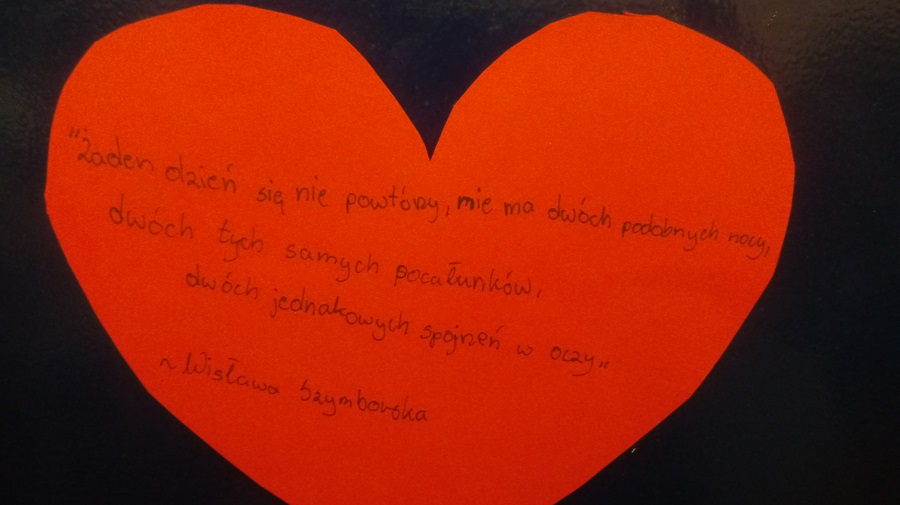 "Żaden dzień się nie powtórzy, nie ma dwóch podobnych nocy,
dwóch tych samych pocałunków,
dwóch jednakowych spojrzeń w oczy"
~ Wisława Szymborska